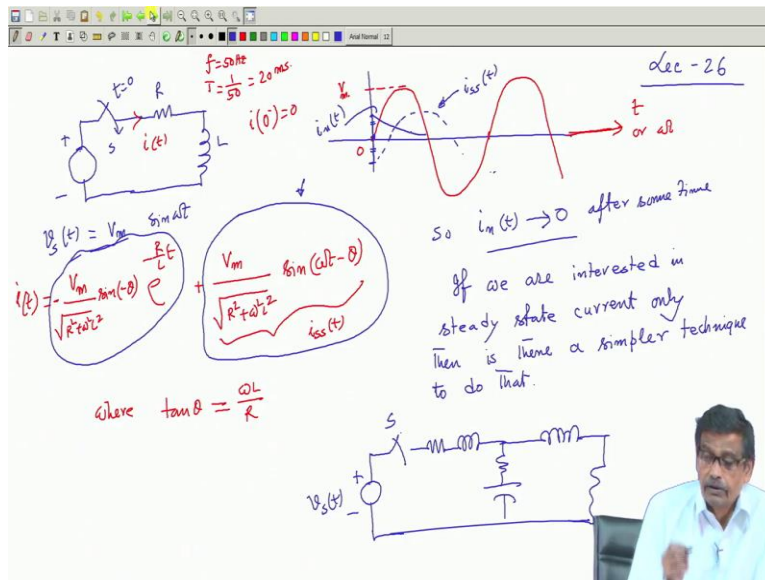 Arial Normal 12
Lec-26
f=50Hz
T=1/50=20ms.
i(0⁻)=0
t=0
R
S
i(t)
L
+
-
Vm
i_ss(t)
i_n(t)
0
t
or ωt
v_s(t) = Vm sin ωt
i(t) = - Vm/√(R²+ω²L²) sin(-θ) e^(-R/L t) + Vm/√(R²+ω²L²) sin(ωt-θ)
i_ss(t)
where tanθ = ωL/R
so i_n(t) → 0 after some time
If we are interested in
steady state current only
Then is there a simpler technique
to do that.
S
+
v_s(t)
-